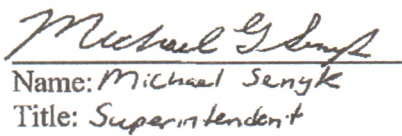 Michael G Senyk
Name: Michael Senyk
Title: Superintendent